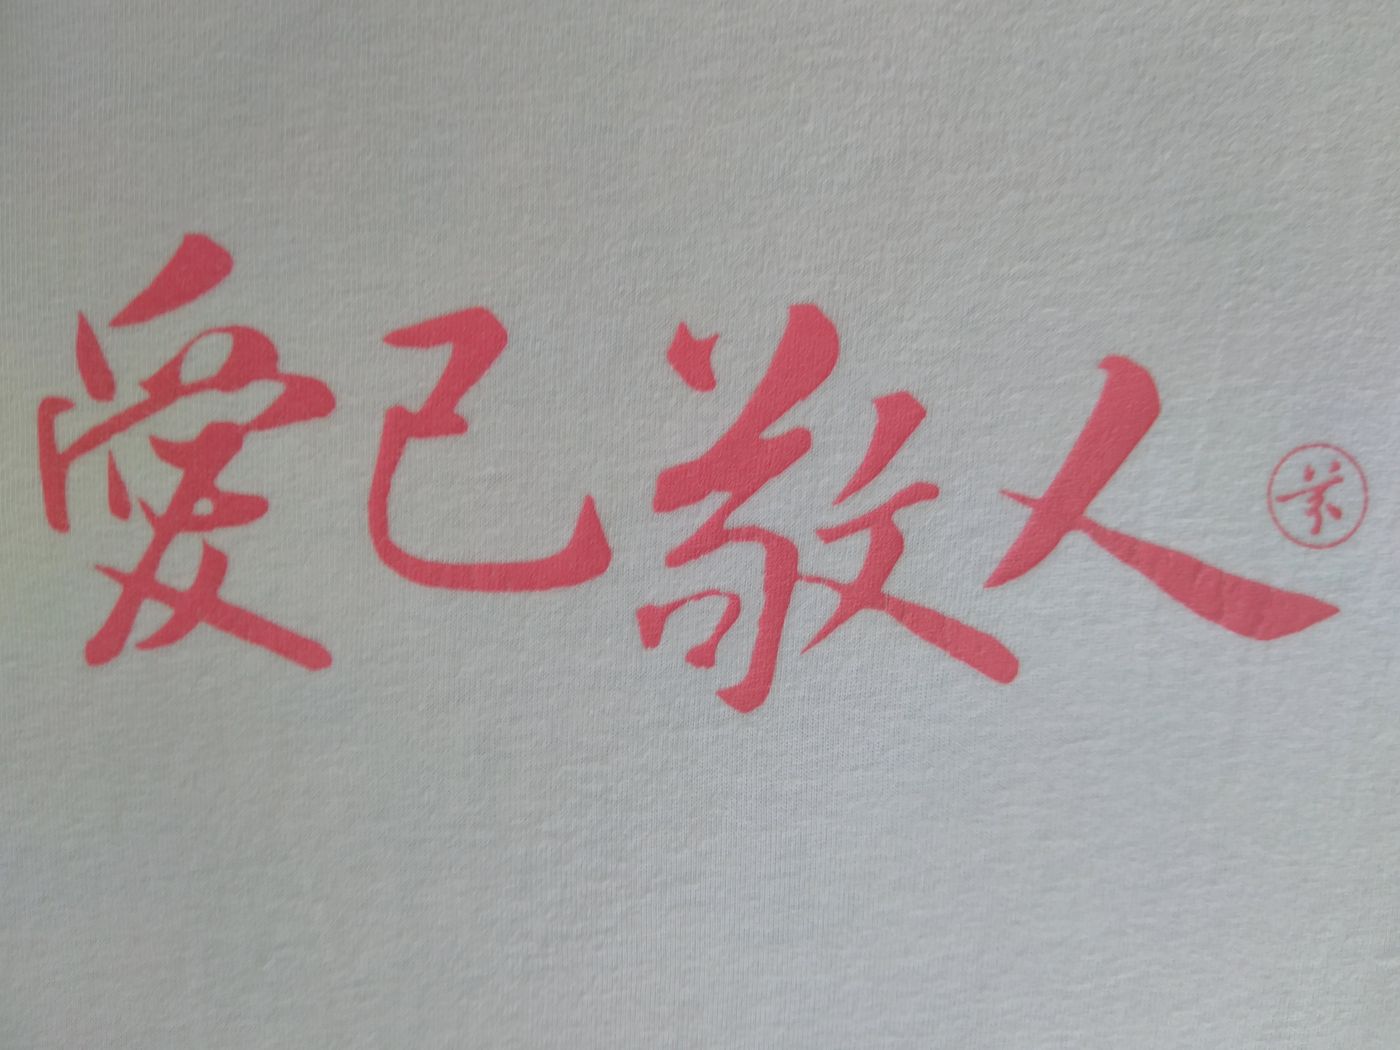 愛己敬人